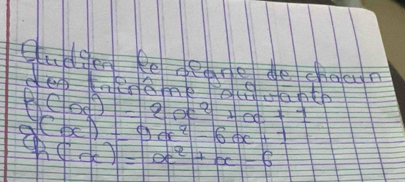 Etudier le signe de chacun
des trinôme suivants
f(x) = 2x² + x + 1
g(x) = 9x² - 6x + 1
h(x) = x² + x - 6